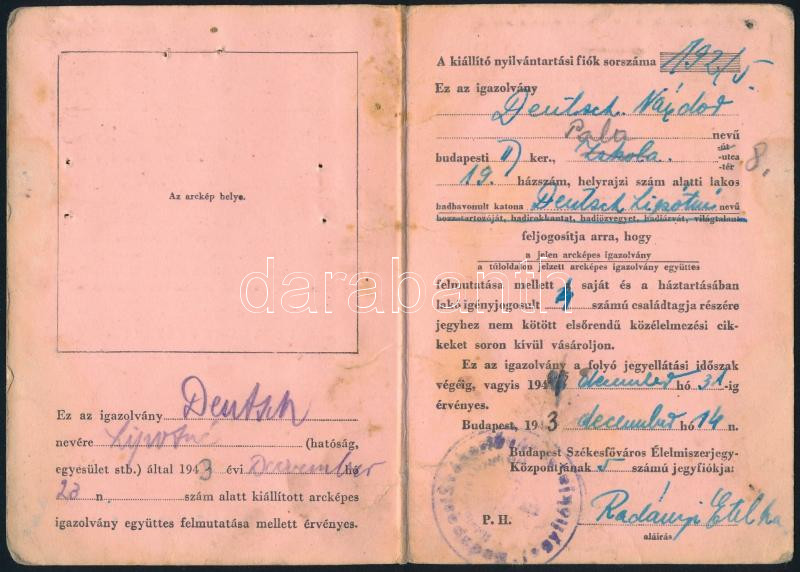 Az arckép helye.
Ez az igazolvány Deutsch
nevére Lipótné (hatóság,
egyesület stb.) által 1943 évi December hó
23 n. szám alatt kiállított arcképes
igazolvány együttes felmutatása mellett érvényes.
A kiállító nyilvántartási fiók sorszáma 192/5.
Ez az igazolvány
Deutsch Nándor
Pala nevű
budapesti II ker., Iskola -út -utca -tér 8.
19. házszám, helyrajzi szám alatti lakos
hadbavonult katona Deutsch Lipótné nevű
hozzátartozóját, hadirokkantat, hadiözvegyet, hadiárvát, világtalant
feljogosítja arra, hogy
a jelen arcképes igazolvány
a túloldalon jelzett arcképes igazolvány együttes
felmutatása mellett saját és a háztartásában
lakó igényjogosult 4 számú családtagja részére
jegyhez nem kötött elsőrendű közélelmezési cik-
keket soron kívül vásároljon.
Ez az igazolvány a folyó jegyellátási időszak
végéig, vagyis 194 december hó 31-ig
érvényes.
Budapest, 1943 december hó 14 n.
Budapest Székesfőváros Élelmiszerjegy-
Központjának 5 számú jegyfiókja:
P. H. Radányi Etelka
aláírás
darabanth